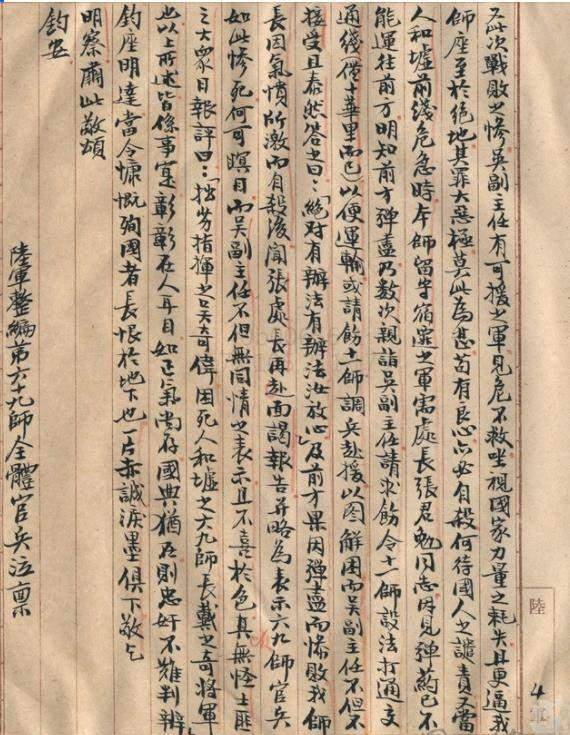 又此次戰敗之慘吳副主任有可援之軍見危不救坐視國家力量之耗失且更逼我
師座至於絕地其罪大惡極莫此為甚苟有良心亦必自殺何待國人之譴責又當
人和墟前綫危急時本師留守宿遷之軍需處長張君勉同志因見彈葯已不
能運往前方明知前方彈盡乃數次親詣吳副主任請求飭令十一師設法打通交
通綫(僅十華里而已)以便運輸或請飭十一師調兵赴援以图解困而吳副主任不但不
接受且泰然答之曰:「絕对有辦法有辦法汝放心」及前方果因彈盡而慘敗我師
長因氣憤所激而自殺後聞張處長再赴面謁報告并略為表示六九師官兵
如此慘死何可瞑目而吳副主任不但無同情之表示且不喜於色真無怪土匪
之大衆日報評曰:「拙劣指揮之吳奇偉困死人和墟之六九師長戴之奇將軍」
也以上所述皆係事實彰彰在人耳目如正氣尚存國典猶在則忠奸不難判辨
鈞座明達當令慷慨殉國者長恨於地下也一片赤誠淚墨俱下敬乞
明察肅此敬頌
鈞安
陸軍整編第六十九師全體官兵泣禀
陸
4